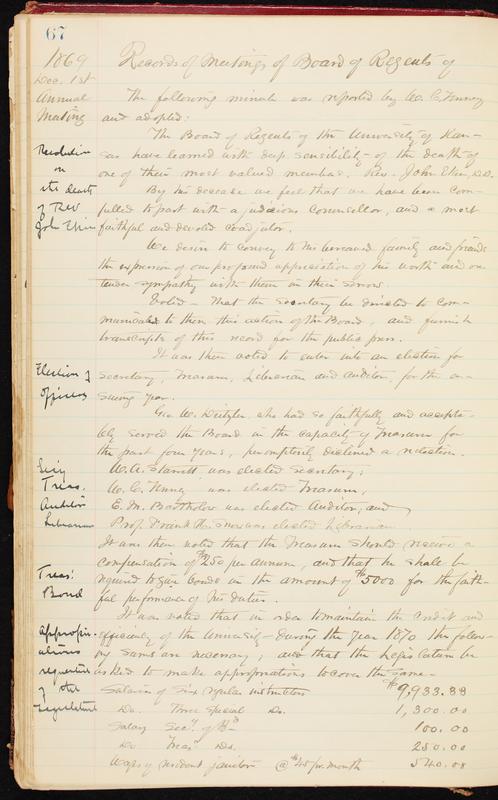 67
1869
Records of Meetings of Board of Regents of
Dec. 1st
Annual
Meeting
The following minute was reported by W. C. Tenney
and adopted:
The Board of Regents of the University of Kan-
sas have learned with deep sensibility of the death of
one of their most valued members. Rev. John Ekin, D.D.
Resolution
on
the death
of Rev
John Ekin
By his decease we feel that we have been com-
pelled to part with a judicious Counsellor, and a most
faithful and devoted coadjutor.
We desire to convey to his bereaved family and friends
the expression of our profound appreciation of his worth and our
tender sympathy with them in their sorrow.
Voted - that the Secretary be directed to com-
municate to them this action of the Board, and furnish
transcripts of this record for the public press.
It was then voted to enter into an election for
Election of
Officers
Secretary, Treasurer, Librarian and Auditor, for the en-
suing year.
Geo. W. Deitzler who had so faithfully and accepta-
bly served the Board in the capacity of Treasurer for
the past four years, peremptorily declined a reelection.
Treas.
Auditor
Librarian
W. A. Starrett was elected Secretary;
W. C. Tenney was elected Treasurer,
E. M. Bartholow was elected Auditor, and
Prof. Frank H. Snow was elected Librarian
It was then voted that the Treasurer should receive a
compensation of $250 per annum, and that he shall be
Treas'
Bond
required to give bonds in the amount of $5000 for the faith-
ful performance of his duties.
It was voted that in order to maintain the credit and
Appropri-
ations
requested
of the
Legislature
efficiency of the University during the year 1870 the follow-
ing sums are necessary, and that the Legislature be
asked to make appropriations to cover the same-
Salaries of Six regular instructors $9,933.33
Do. Three Special Do. 1,300.00
Salary Sec'y of Bd 100.00
Do Treas' Do. 250.00
Wages resident janitor @ $45 pr. month 540.00